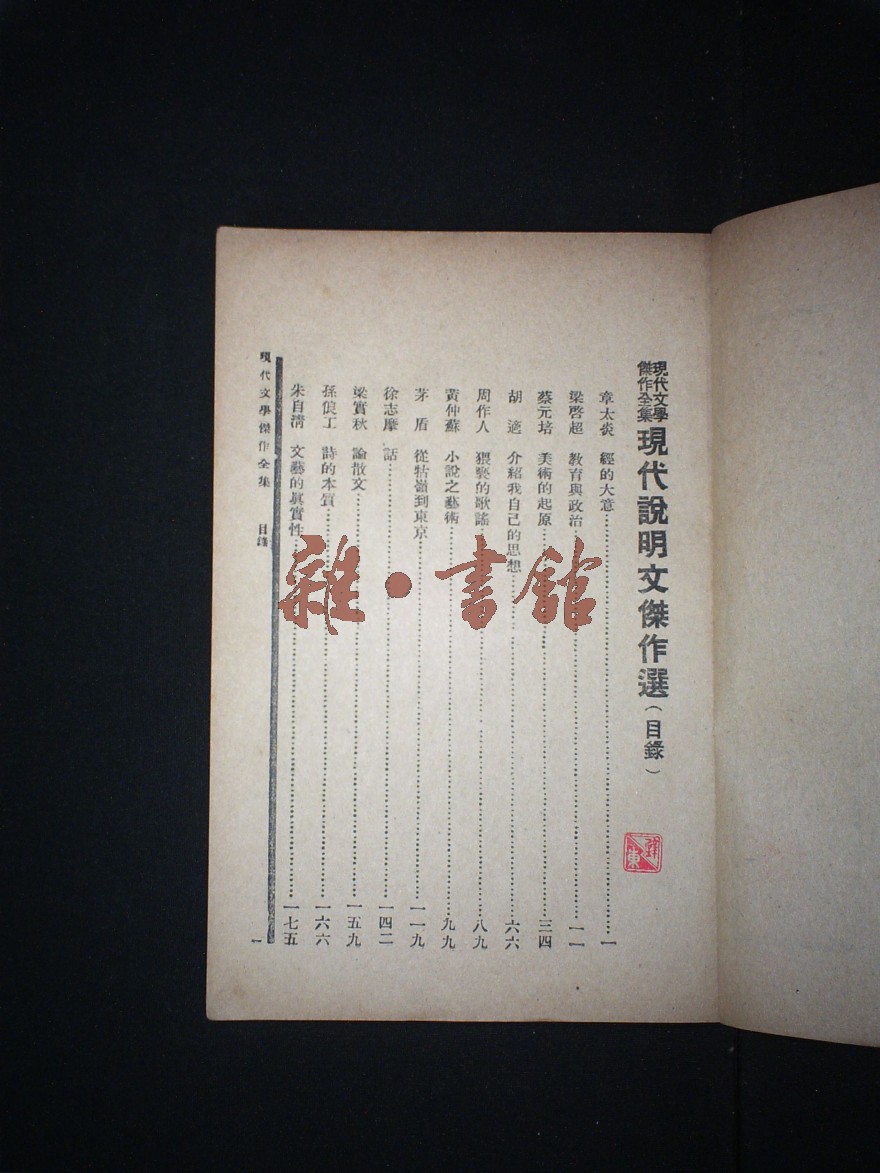 現代文學傑作全集
現代說明文傑作選(目錄)
章太炎 經的大意 一
梁啓超 教育與政治 一一
蔡元培 美術的起原 三四
胡適 介紹我自己的思想 六六
周作人 猥褻的歌謠 八九
黃仲蘇 小說之藝術 九九
茅盾 從牯嶺到東京 一一九
徐志摩 話 一四二
梁實秋 論散文 一五九
孫俍工 詩的本質 一六六
朱自淸 文藝的眞實性 一七五
現代文學傑作全集 目錄
一
雜·書館